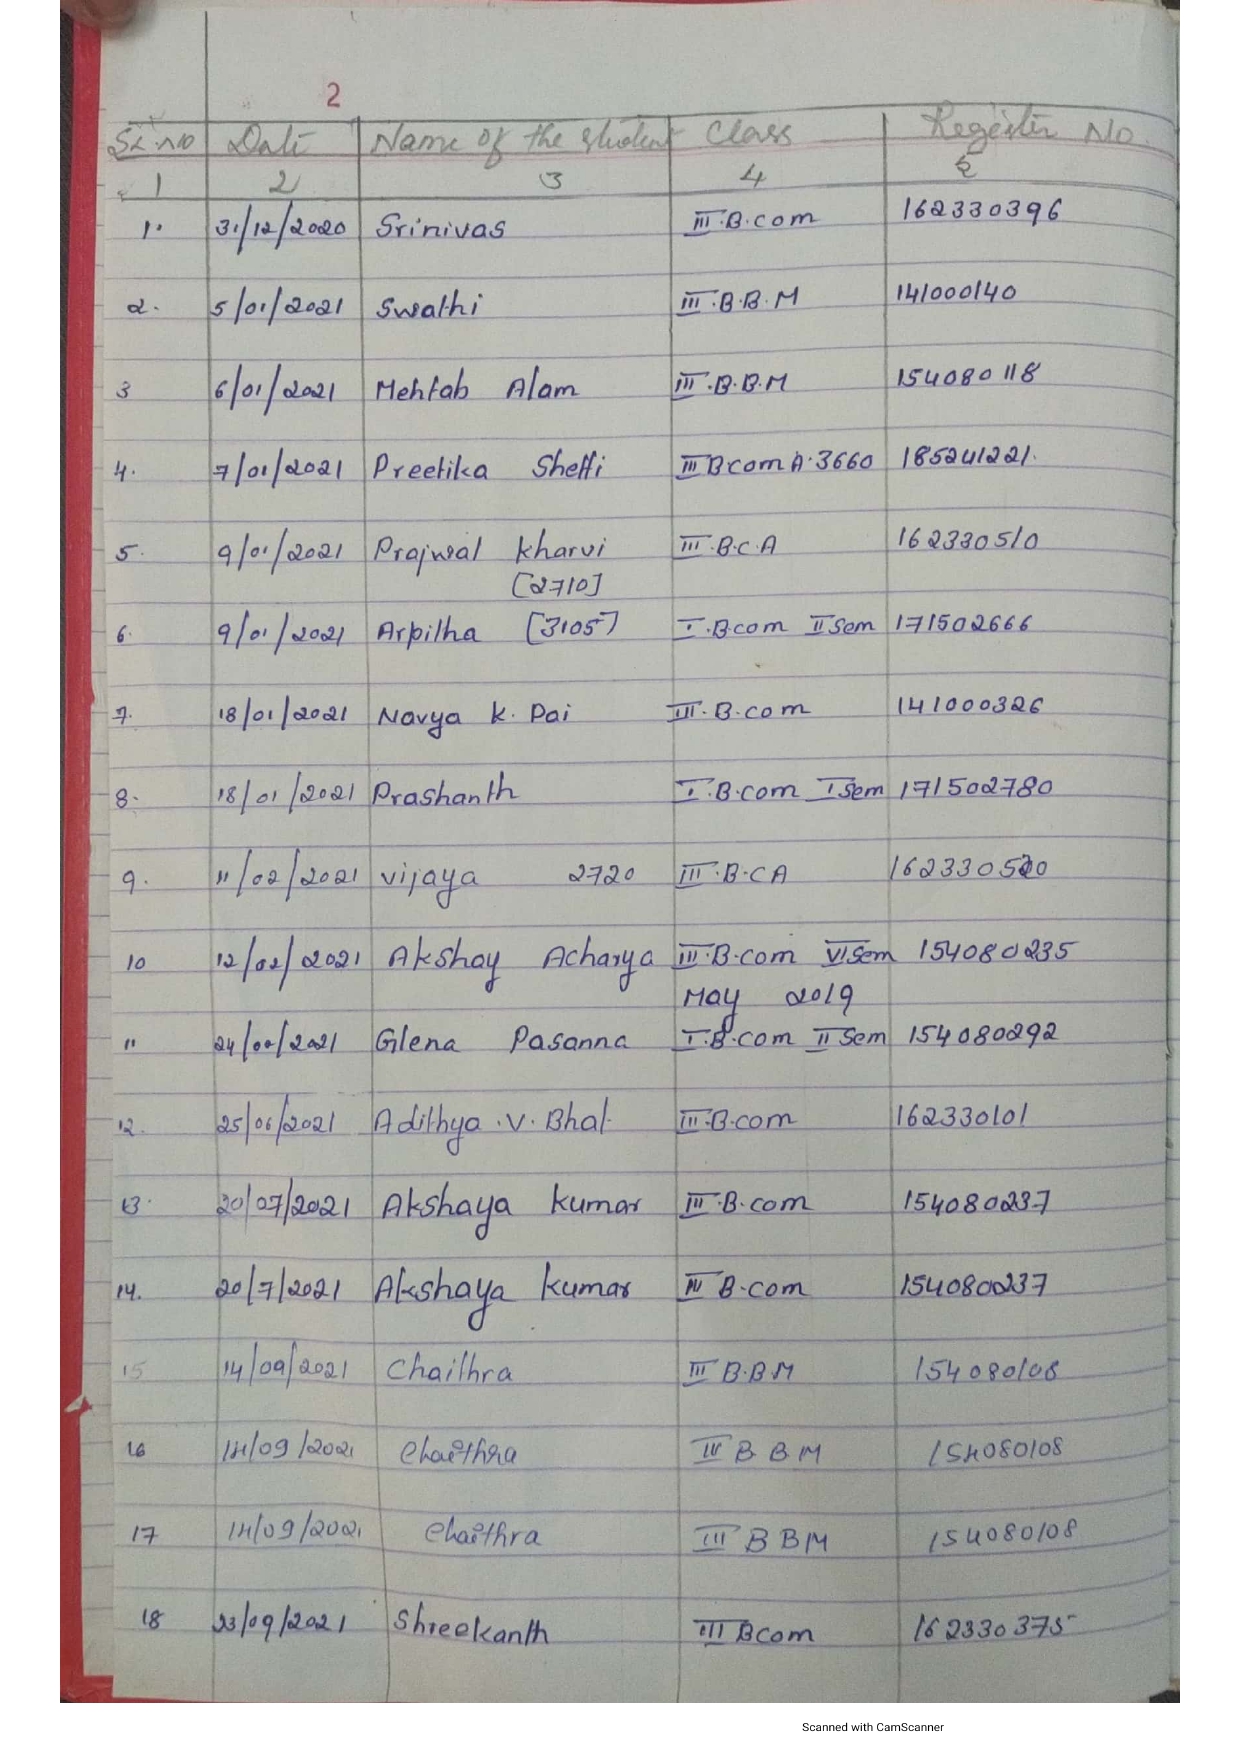 2
SL.NO Date Name of the student Class Register No.
1 2 3 4 5
1. 31/12/2020 Srinivas III.B.com 162330396
2. 5/01/2021 Swathi III.B.B.M 141000140
3 6/01/2021 Mehtab Alam III.B.B.M 154080118
4. 7/01/2021 Preetika Shetti III Bcom A.3660 185241221.
5. 9/01/2021 Prajwal Kharvi III.B.C.A 162330510
[2710]
6. 9/01/2021 Arpitha [3105] I.Bcom II Sem 171502666
7. 18/01/2021 Navya K. Pai III.B.com 141000326
8. 18/01/2021 Prashanth I.B.com I Sem 171502780
9. 11/02/2021 Vijaya 2720 III.B.CA 162330520
10 12/02/2021 Akshay Acharya III.B.com VI Sem 154080235
May 2019
11 24/02/2021 Glena Pasanna I.B.com II Sem 154080292
12. 25/06/2021 Adithya.V.Bhat III.B.com 162330101
13. 20/07/2021 Akshaya Kumar III.B.com 154080237
14. 20/7/2021 Akshaya Kumar IV B.com 154080237
15 14/09/2021 Chaithra III B.BM 154080108
16 14/09/2021 Chaithra IV B B M 154080108
17 14/09/2021 Chaithra III B B M 154080108
18 23/09/2021 Shreekanth III Bcom 162330375
Scanned with CamScanner